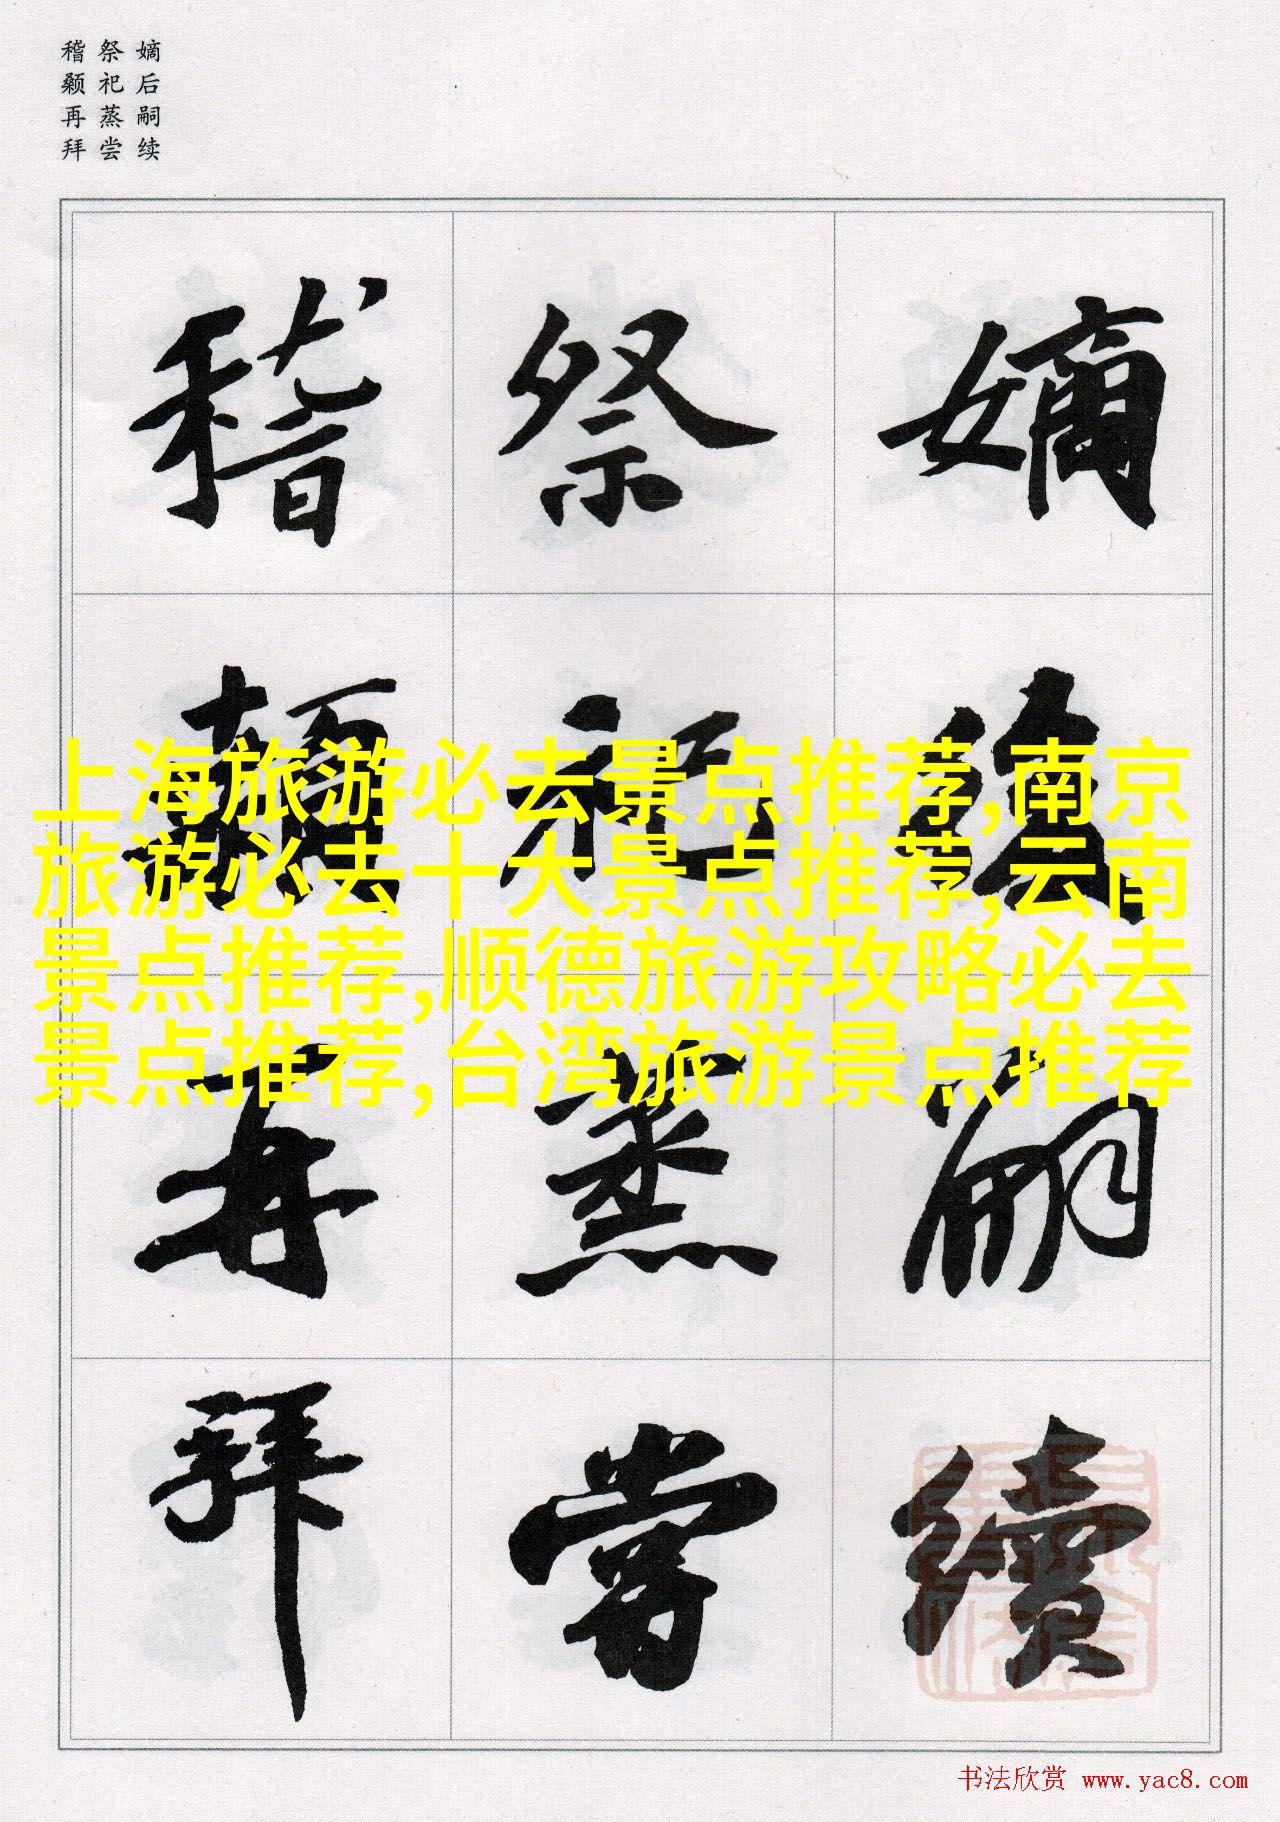 嫡后嗣续
祭祀蒸尝
稽颡再拜
嫡後嗣續
祭祀蒸嘗
稽顙再拜
上海旅游必去景点推荐,南京
旅游必去十大景点推荐,云南
景点推荐,顺德旅游攻略必去
景点推荐,台湾旅游景点推荐
书法欣赏 www.yac8.com